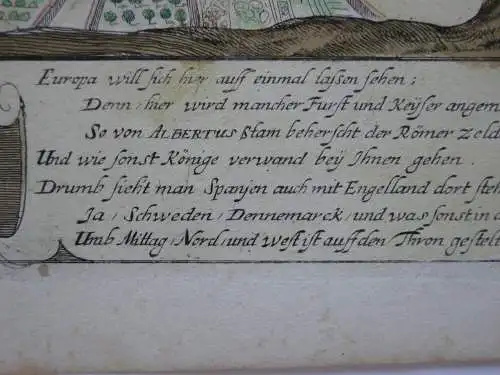 Europa will sich hier auff einmal lassen sehen;
Denn hier wird mancher Furst und Keÿser angem
So von ALBERTUS Stam beherscht der Römer Zeld
Und wie sonst Könige verwand beÿ Ihnen gehen.
Drumb sieht man Spanjen auch mit Engelland dort steh
Ja, Schweden, Dennemarck, und was sonst in d
Umb Mittag, Nord, und West ist auff den Thron gestelt